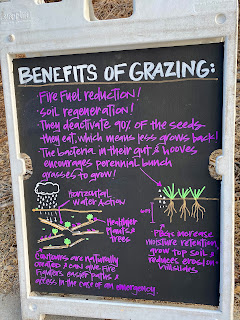 BENEFITS OF GRAZING:
• Fire Fuel reduction!
• Soil regeneration!
• They deactivate 99% of the seeds
they eat, which means less grows back!
• The bacteria in their gut & hooves
encourages perennial bunch
grasses to grow!
horizontal
water action
Healthier
plants &
trees
Contours are naturally
created & can give fire
fighters easier paths &
access in the case of an emergency.
increase
moisture retention,
grow top soil &
reduces erosion on
hillsides